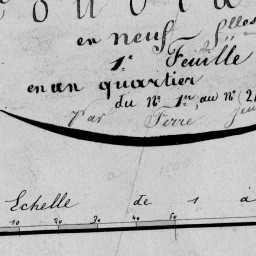 en neuf flles
1.e Feuille
en un quartier
du N.º 1.er, au N.º (2
Par Pierre
Echelle de 1 à
10 20 30 40 50